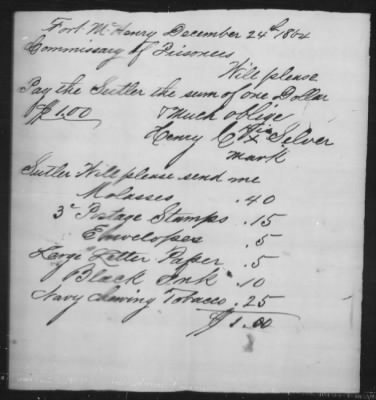 Fort McHenry December 24th 1864
Commissary of Prisoners
Will please
Pay the Sutler the sum of one Dollar
$1.00 & much oblige
his
Henry C X Silver
mark
Sutler Will please send me
Molasses .40
3c Postage Stamps .15
Envelopes .5
Large Letter Paper .5
Black Ink .10
Navy chewing Tobacco .25
$1.00